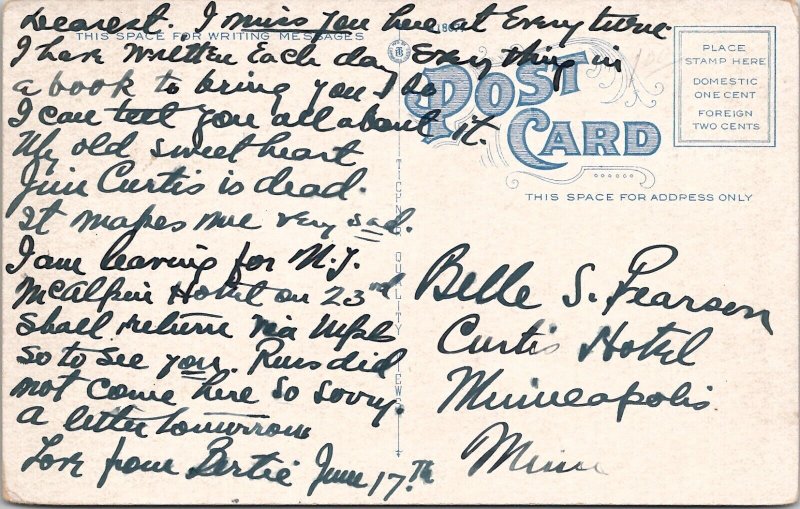 Dearest. I miss you here at Every turn
THIS SPACE FOR WRITING MESSAGES
I have written Each day Every thing in
a book to bring you I do
I can tell you all about it.
My old sweetheart
Jim Curtis is dead.
It makes me very sad.
I am leaving for N.Y.
McAlpin Hotel on 23rd
Shall return via Mpls
so to see you.
did
not come here so sorry
a letter tomorrow
Love from Bertie June 17.Th
POST
CARD
PLACE
STAMP HERE
DOMESTIC
ONE CENT
FOREIGN
TWO CENTS
THIS SPACE FOR ADDRESS ONLY
QUALITY VIEWS
Belle S. Pearson
Curtis Hotel
Minneapolis
Minn